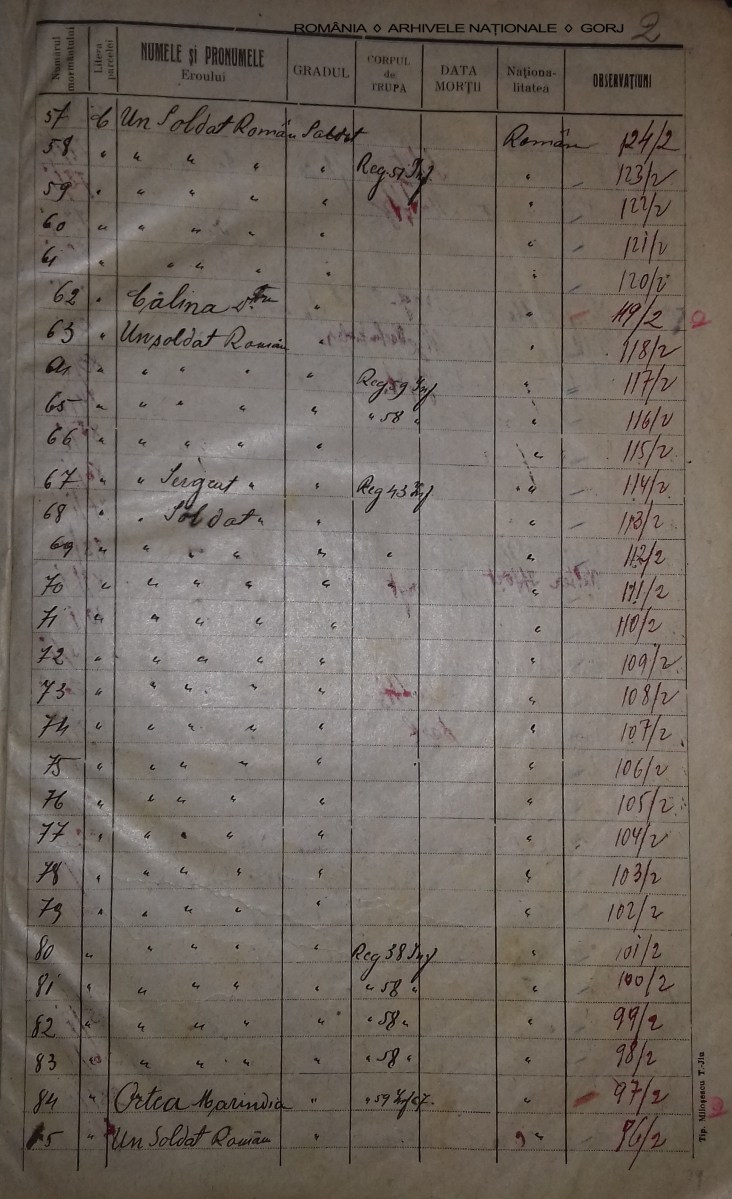 ROMÂNIA ◊ ARHIVELE NAȚIONALE ◊ GORJ 2
Numărul mormântului Litera parcelei NUMELE și PRONUMELE Eroului GRADUL CORPUL de TRUPA DATA MORȚII Naționalitatea OBSERVAȚIUNI
57 C Un Soldat Român Soldat Român 124/2
58 " " " " " Reg. 51 Inf. " 123/2
59 " " " " " " 122/2
60 " " " " " " 121/2
61 " " " " " 120/2
62 " Călina " " 119/2
63 " Un soldat Român " " 118/2
64 " " " " " Reg. 59 Inf. " 117/2
65 " " " " " " 58 " " 116/2
66 " " " " " " 115/2
67 " " Sergent " " Reg 43 Inf " 114/2
68 " " Soldat " " " 113/2
69 " " " " " " " 112/2
70 " " " " " " " 111/2
71 " " " " " " 110/2
72 " " " " " " 109/2
73 " " " " " " 108/2
74 " " " " " " 107/2
75 " " " " " " 106/2
76 " " " " " " 105/2
77 " " " " " " 104/2
78 " " " " " " 103/2
79 " " " " " " 102/2
80 " " " " " Reg 38 Inf " 101/2
81 " " " " " " 58 " " 100/2
82 " " " " " " 58 " " 99/2
83 " " " " " " 58 " " 98/2
84 " Ortea Marindia " " 59 Inf " 97/2
85 " Un Soldat Român " " 96/2
Tip. Miloșescu T.-Jiu